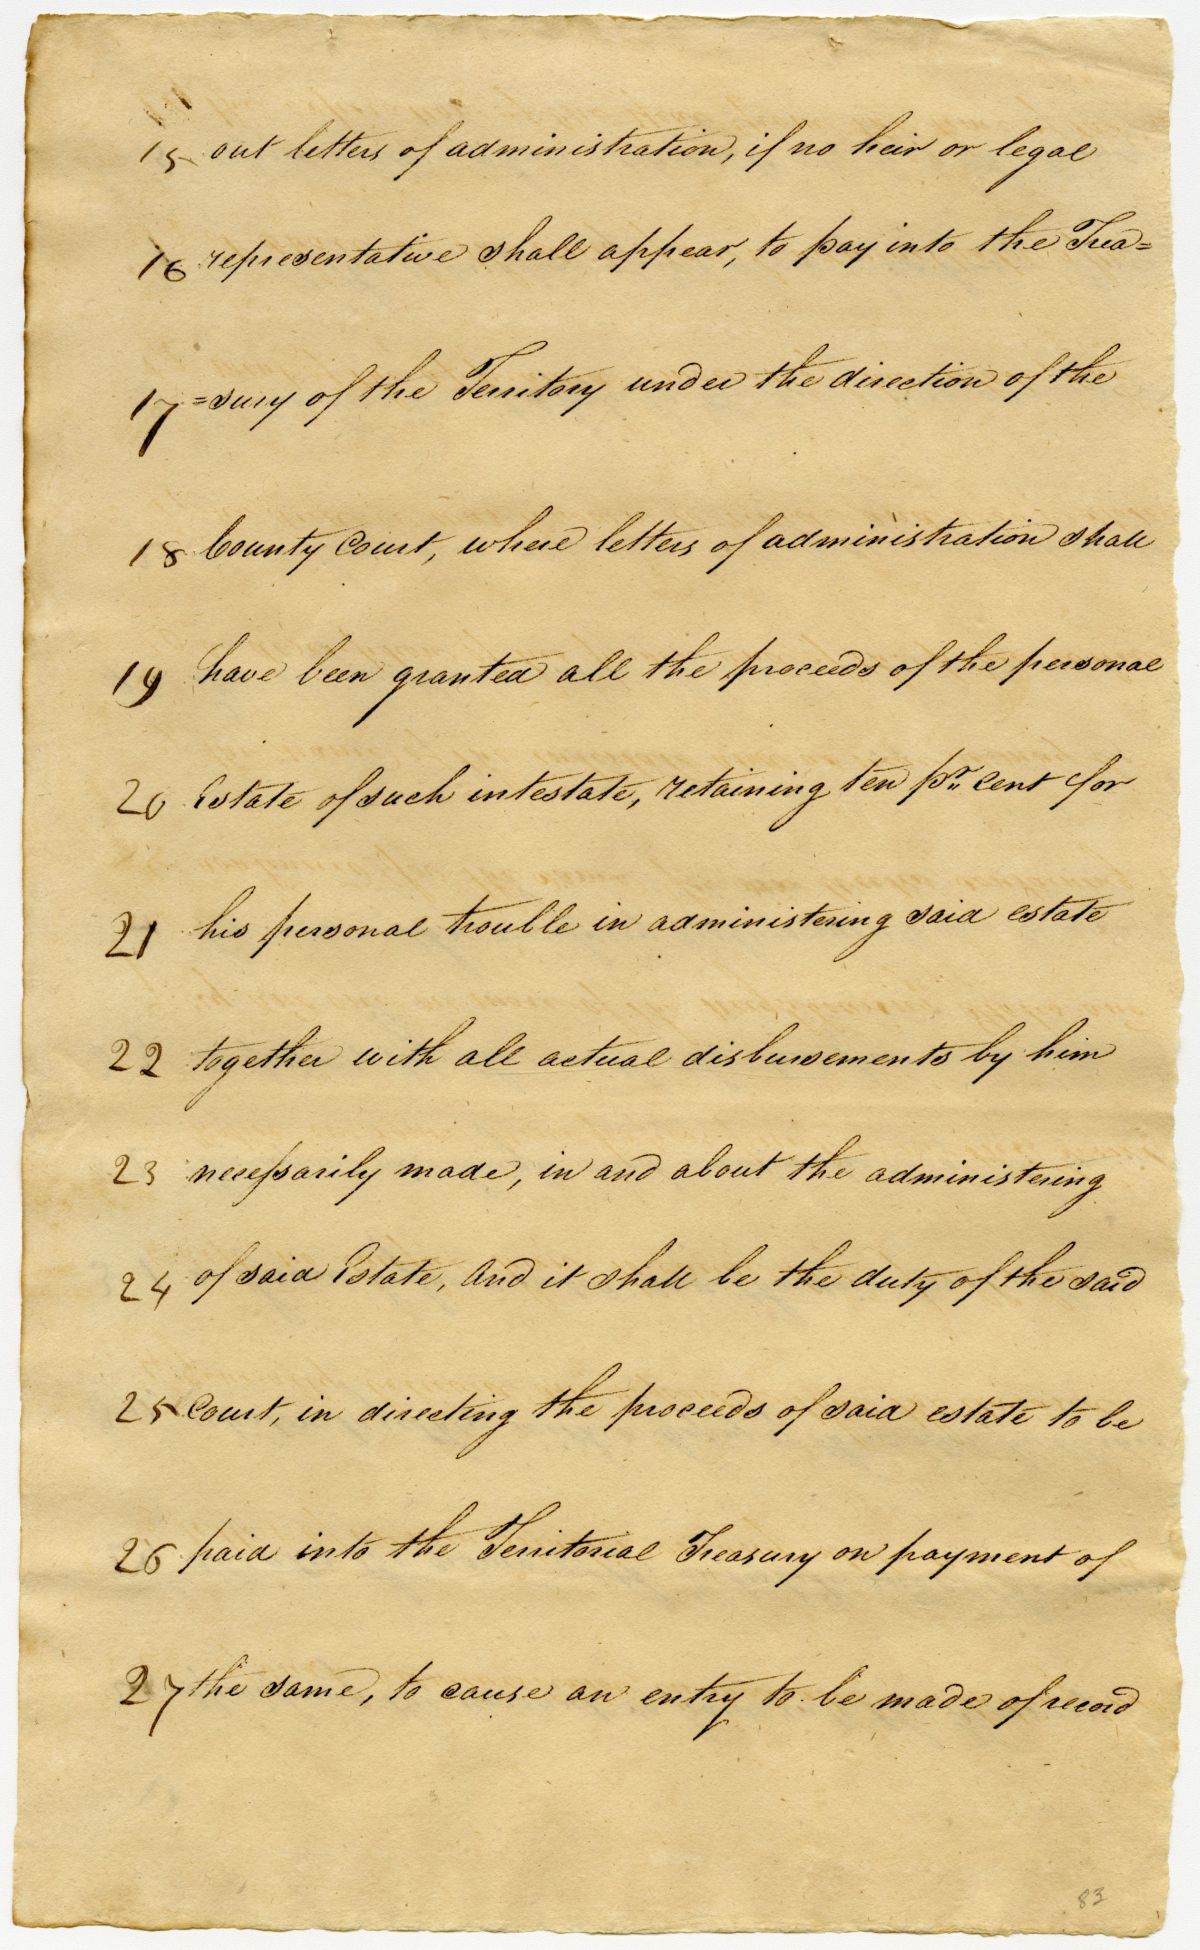 15 out letters of administration, if no heir or legal
16 representative shall appear, to pay into the Trea=
17 =sury of the Territory under the direction of the
18 County Court, where letters of administration shall
19 have been granted all the proceeds of the personal
20 Estate of such intestate, retaining ten pr. Cent for
21 his personal trouble in administering said estate
22 together with all actual disbursements by him
23 necessarily made, in and about the administering
24 of said Estate, And it shall be the duty of the said
25 Court, in directing the proceeds of said estate to be
26 paid into the Territorial Treasury on payment of
27 the same, to cause an entry to be made of record
83